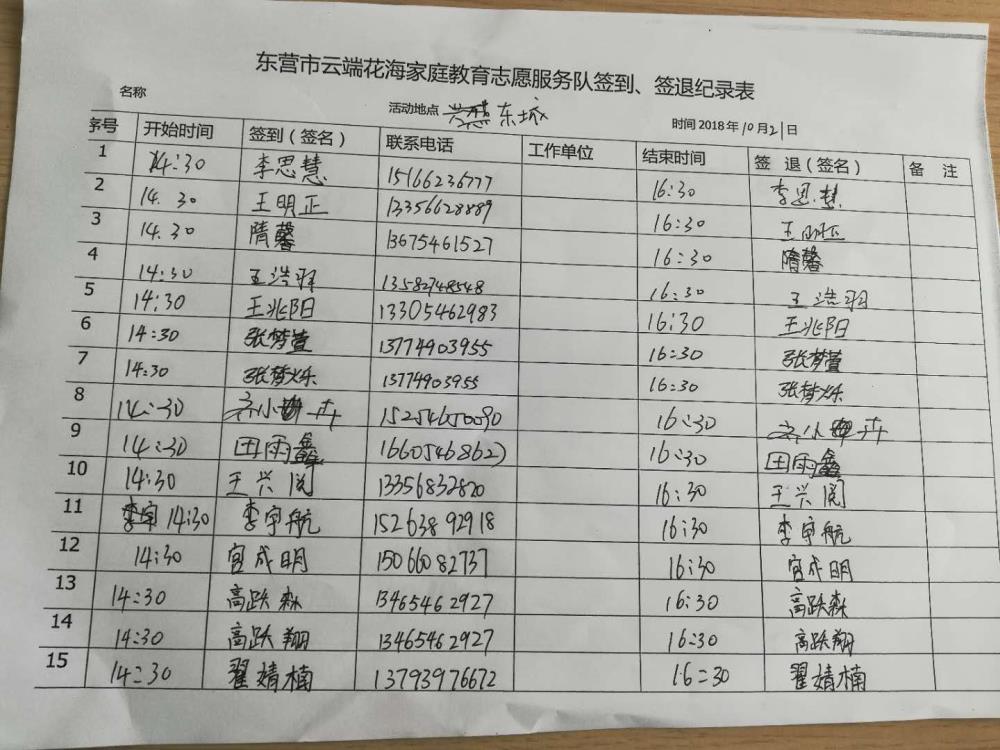 东营市云端花海家庭教育志愿服务队签到、签退纪录表
名称 活动地点 东城 时间 2018年10月21日
序号 开始时间 签到（签名） 联系电话 工作单位 结束时间 签 退（签名） 备 注
1 14:30 李思慧 15166236777 16:30 李思慧
2 14.30 王明正 13356628889 16:30 王明正
3 14.30 隋馨 13675461527 16:30 隋馨
4 14:30 王浩羽 13582748548 16:30 王浩羽
5 14:30 王兆阳 13305462983 16:30 王兆阳
6 14:30 张梦萱 13774903955 16:30 张梦萱
7 14:30 张梦烁 13774903955 16:30 张梦烁
8 14:30 齐小卉 15254650090 16:30 齐小卉
9 14:30 田雨鑫 16605468627 16:30 田雨鑫
10 14:30 王兴阅 13356832820 16:30 王兴阅
11 14:30 李宇航 15263892918 16:30 李宇航
12 14:30 宫成明 15066082737 16:30 宫成明
13 14:30 高跃森 13465462927 16:30 高跃森
14 14:30 高跃翔 13465462927 16:30 高跃翔
15 14:30 翟婧楠 13793976672 16:30 翟婧楠